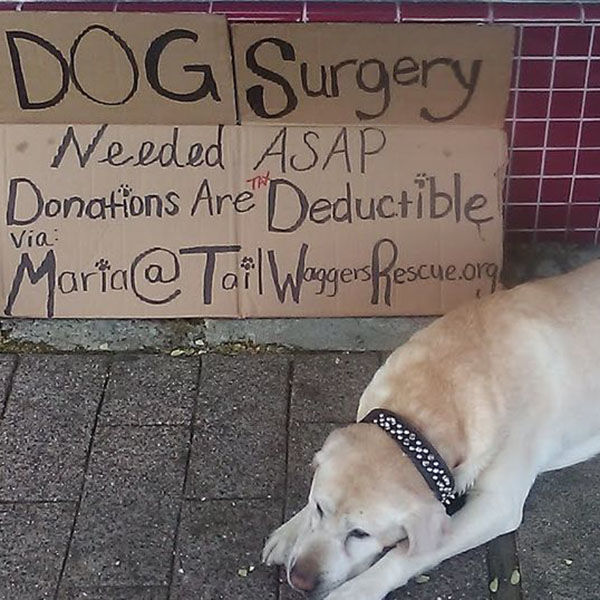 DOG Surgery
Needed ASAP
Donations Are TAX Deductible
via:
Maria@TailWaggersRescue.org